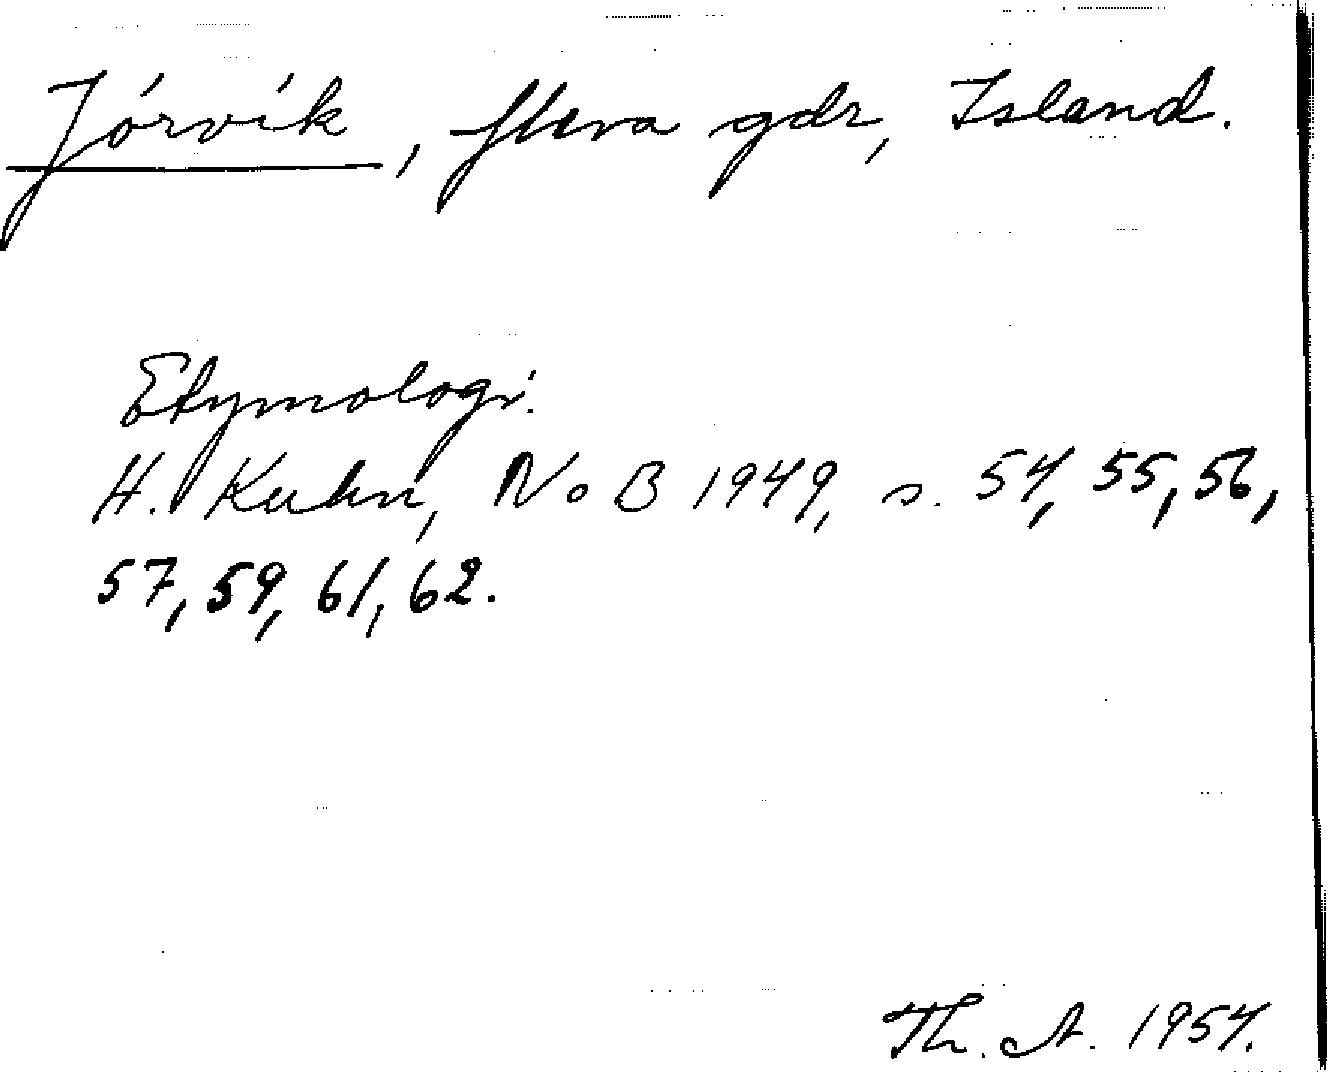 Jórvík, flera gdr, Island.
Etymologi.
H. Kuhn, NoB 1949, s. 54, 55, 56,
57, 59, 61, 62.
Th. A. 1954.